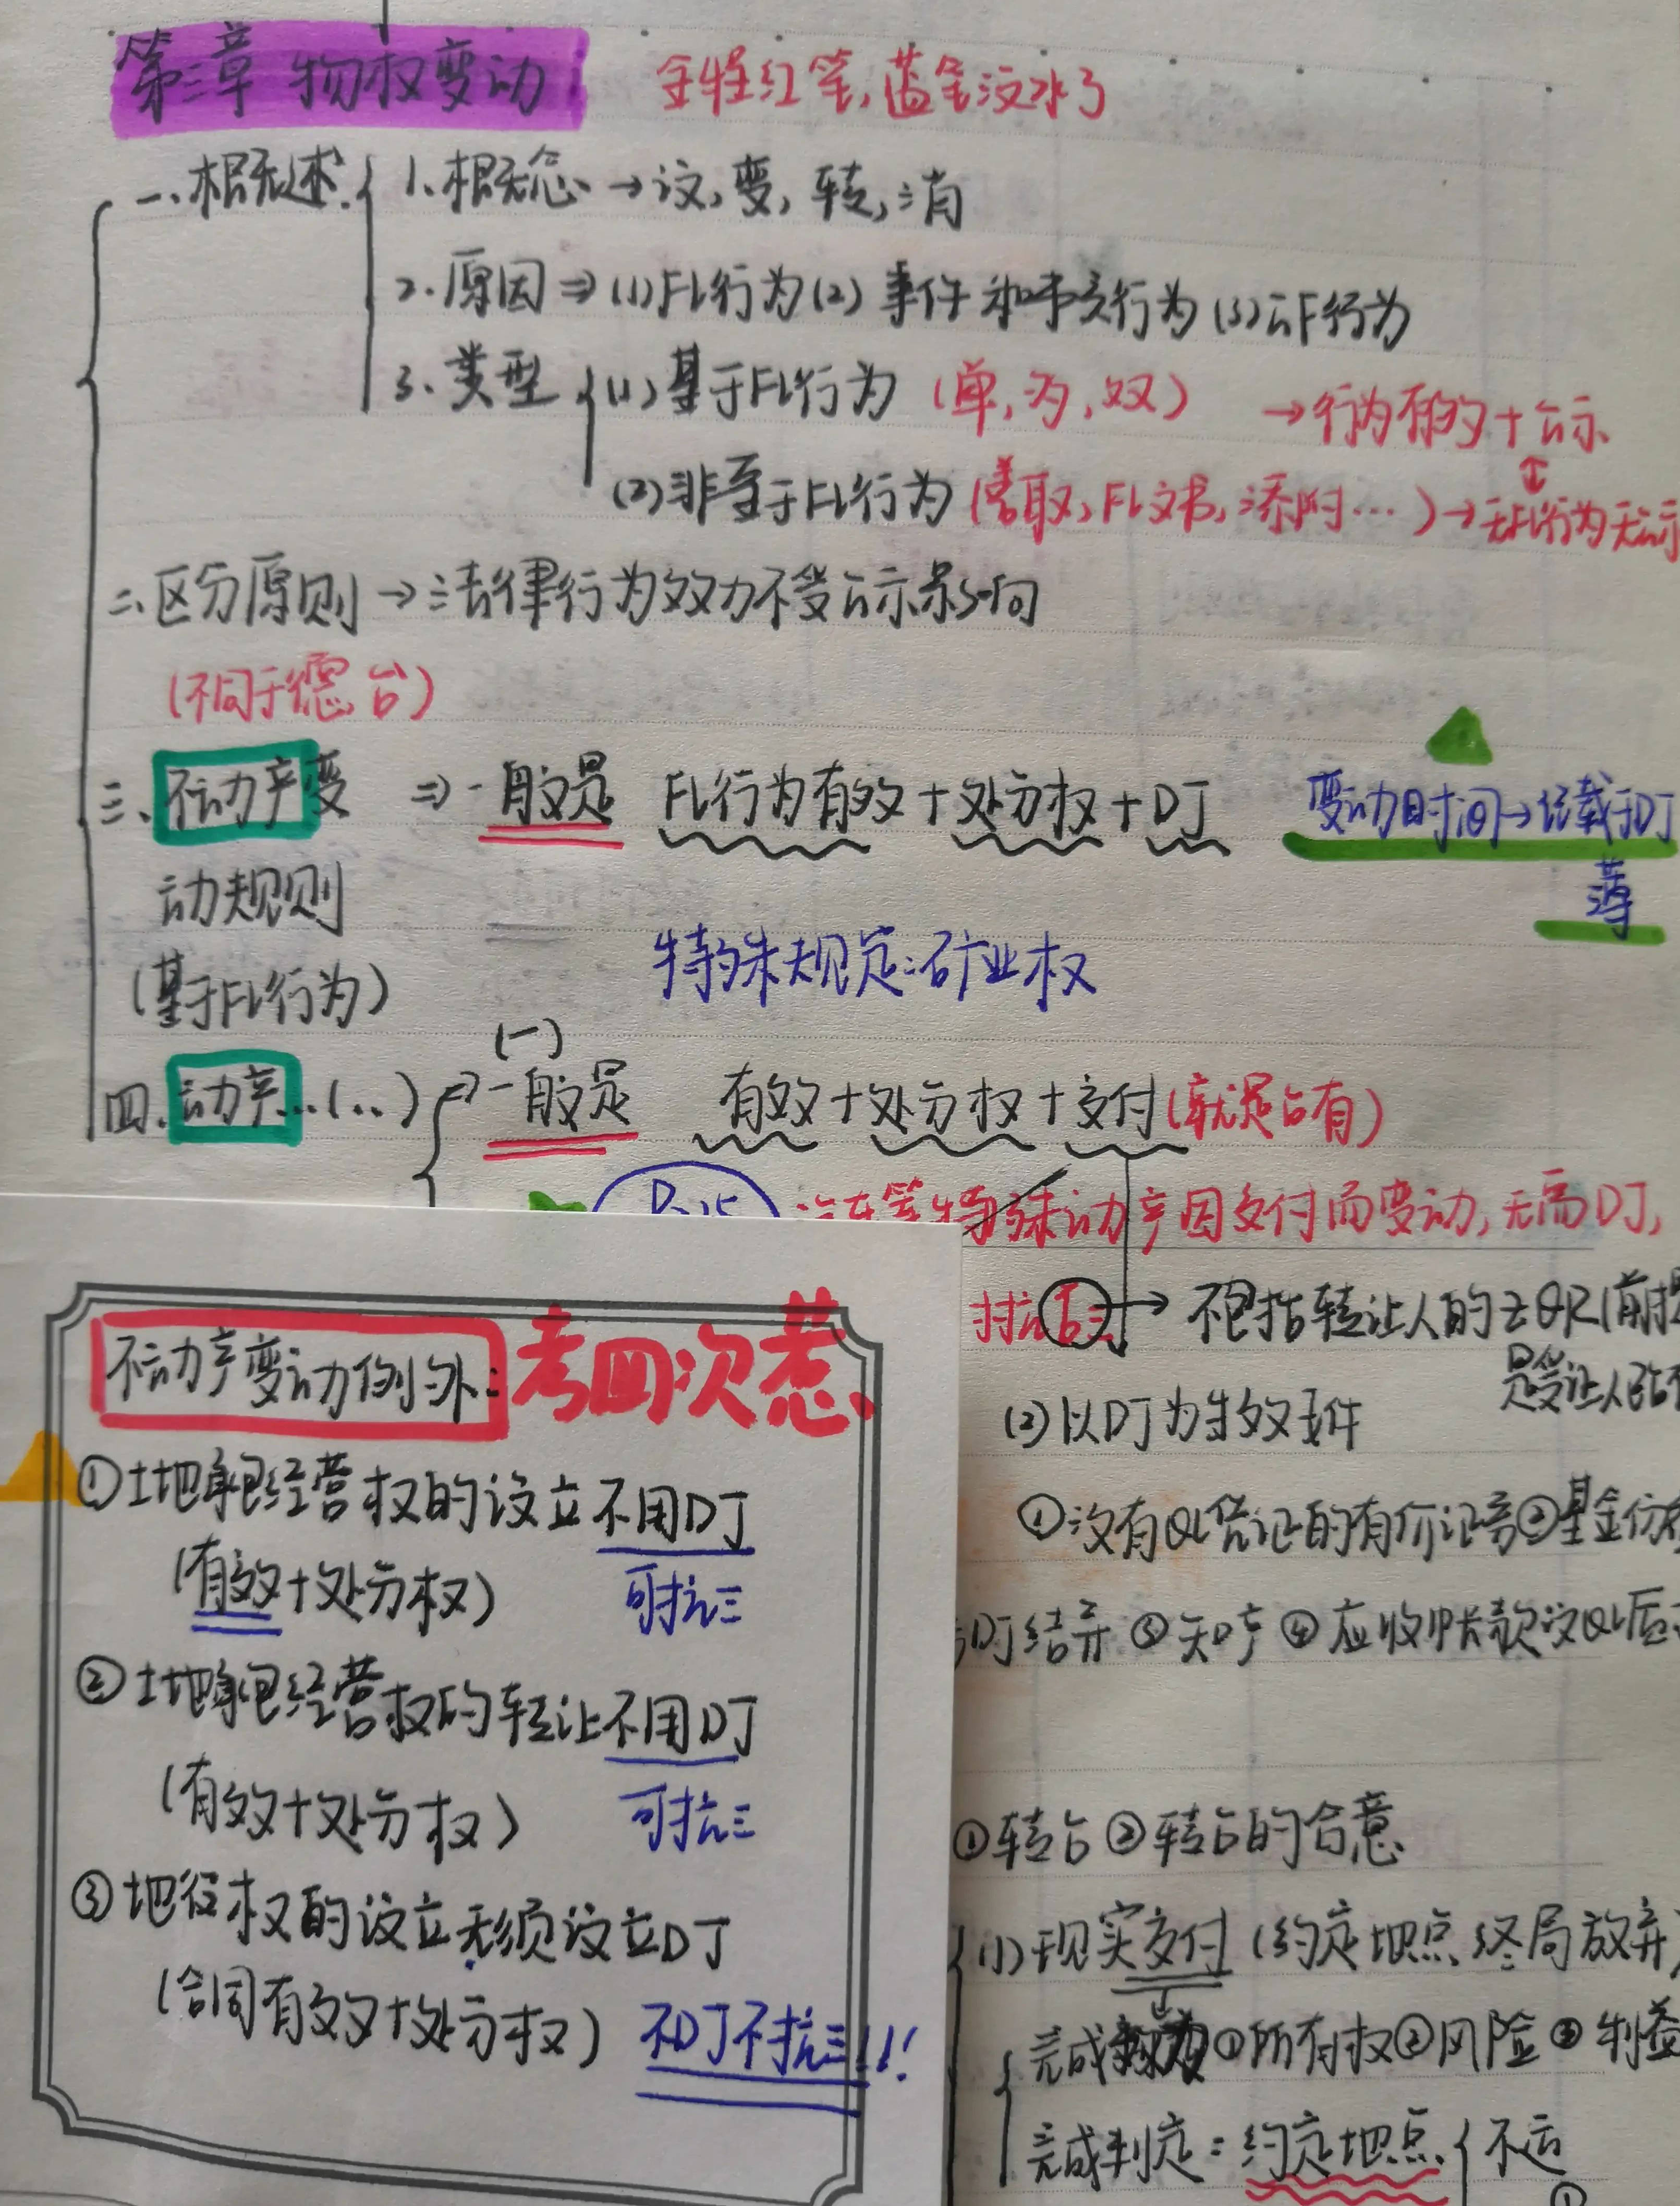 第三章 物权变动 全怪红笔,蓝笔没水了
一、概述 1、概念→设,变,转,消
2.原因⇒(1)FL行为(2)事件和事实行为(3)公F行为
3、类型 (1)基于FL行为(单,为,双)→行为有效+公示
(2)非基于FL行为(善取,FL文书,添附…)→无FL行为无公示
二、区分原则→法律行为效力不受公示影响
(不同于德台)
三、不动产变 ⇒一般是 FL行为有效+处分权+DJ 变动时间→记载于DJ
动规则 簿
(基于FL行为) 特殊规定:矿业权
(一)
四、动产…(..) ⇒一般是 有效+处分权+交付(就是占有)
汽车等特殊动产因交付而变动,无需DJ,
不包括转让人的ZQR(前提
是受让人
(2)以DJ为生效要件
①没有QL凭证的有价证券②基金份
DJ结弄 ③知产 ④应收帐款
①转占②转占的合意
(1)现实交付(约定地点终局放弃
完成 ①所有权②风险③利益
完成判定:约定地点 不运
不动产变动例外:考四次惹
①土地承包经营权的设立不用DJ
(有效+处分权) 可抗三
②土地承包经营权的转让不用DJ
(有效+处分权) 可抗三
③地役权的设立无须设立DJ
(合同有效+处分权) 不DJ不抗三!!!